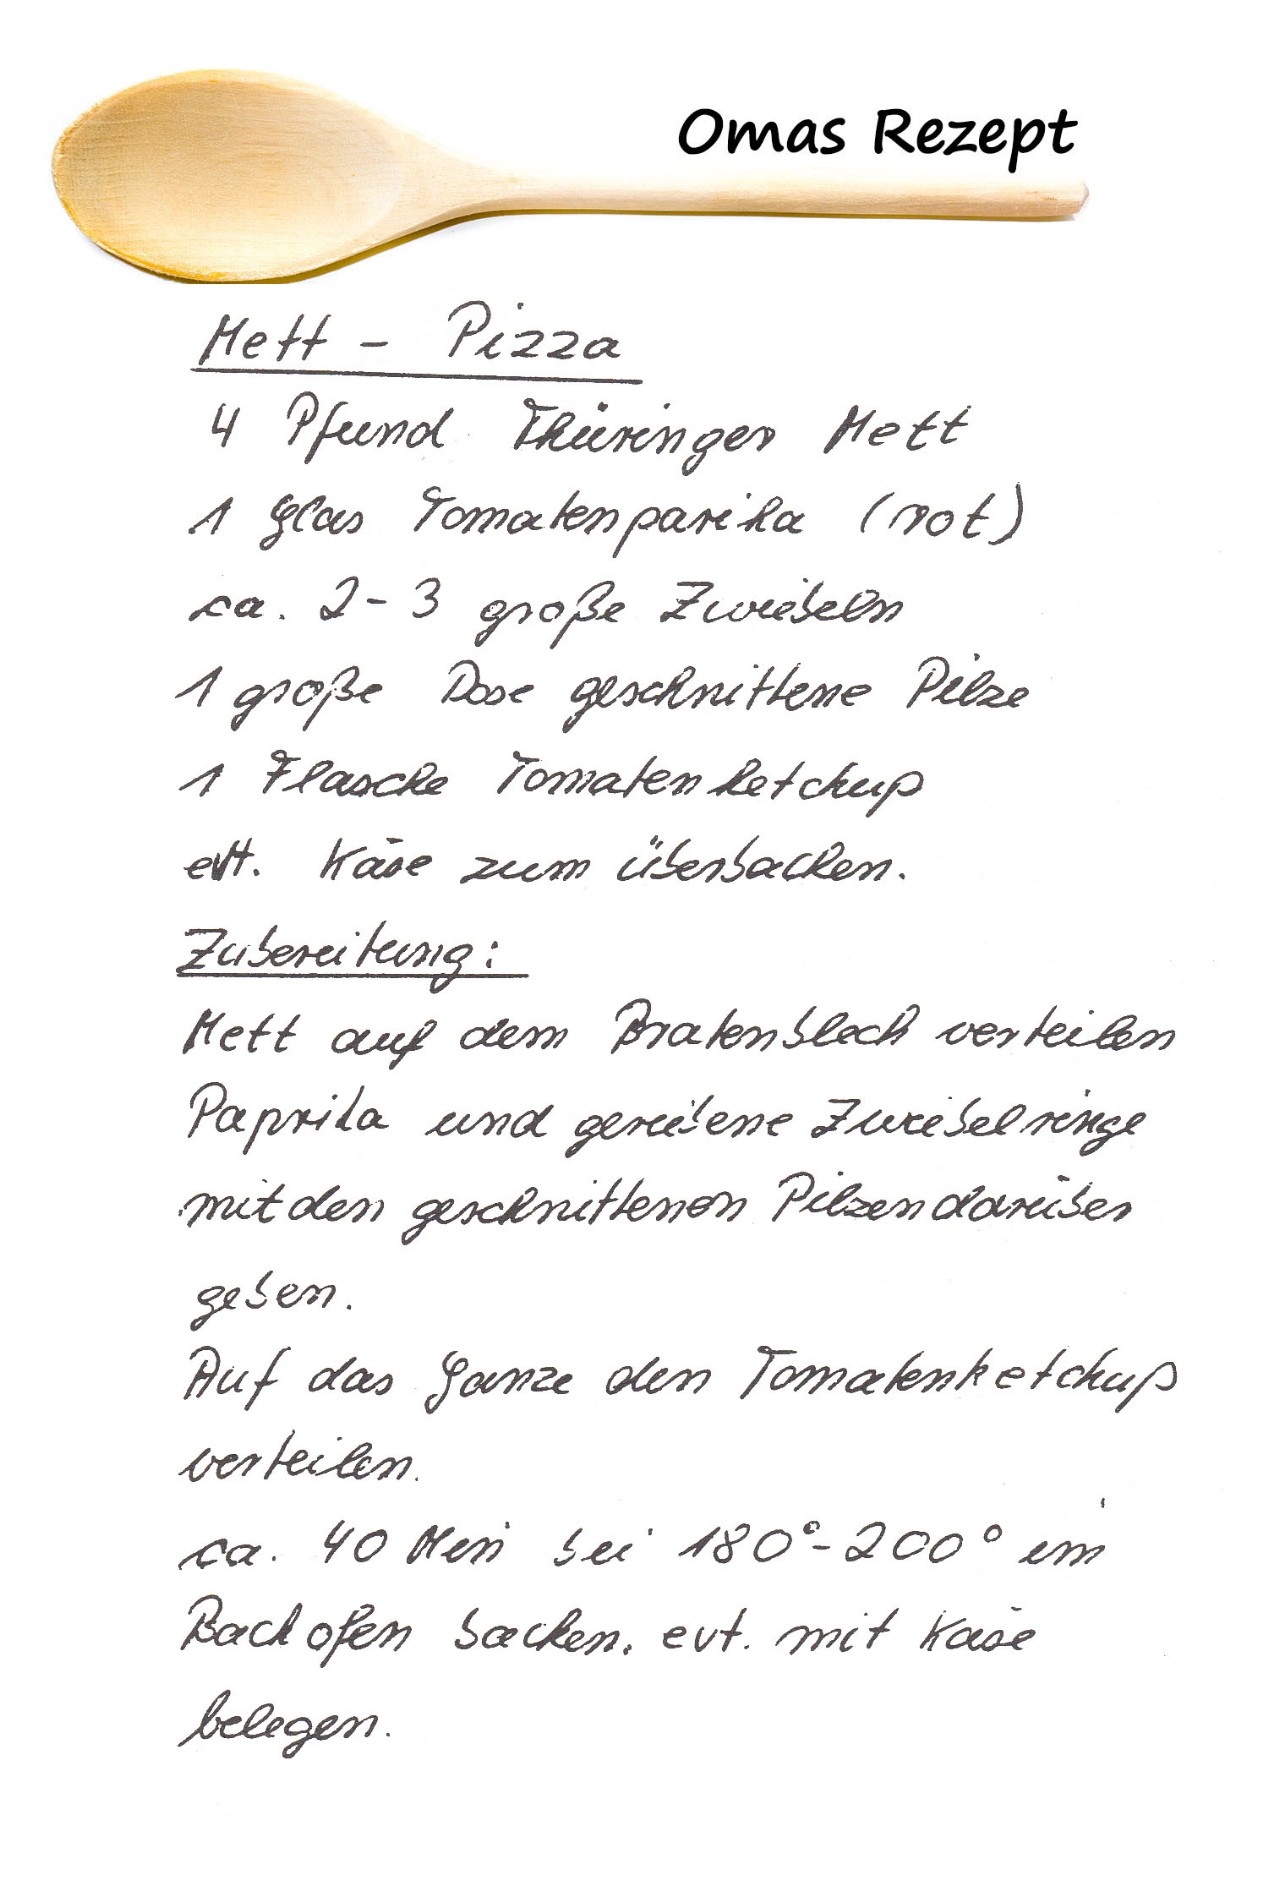 Omas Rezept
Mett - Pizza
4 Pfund Thüringer Mett
1 Glas Tomatenparika (rot)
ca. 2-3 große Zwiebeln
1 große Dose geschnittene Pilze
1 Flasche Tomatenketchup
evt. Käse zum überbacken.
Zubereitung:
Mett auf dem Bratenblech verteilen
Paprika und geriebene Zwiebelringe
mit den geschnittenen Pilzen darüber
geben.
Auf das Ganze den Tomatenketchup
verteilen.
ca. 40 Min bei 180°-200° im
Backofen backen. evt. mit Käse
belegen.